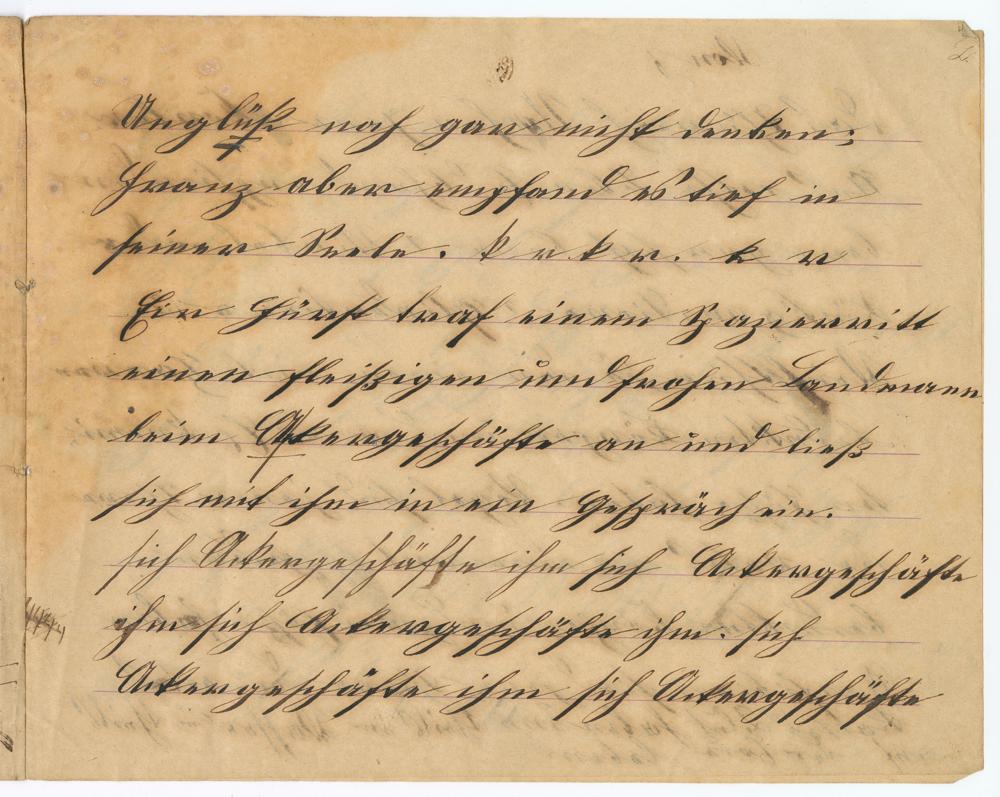 Unglük noch gar nicht denken;
Franz aber empfand es tief in
seiner Seele. k r k r. k r
Ein Fürst traf einem Spazierritt
einen fleißigen und frohen Landmann
beim Akergeschäfte an und ließ
sich mit ihm in ein Gespräch ein.
sich Ackergeschäfte ihm sich Ackergeschäfte
ihm sich Ackergeschäfte ihm. sich
Ackergeschäfte ihm sich Ackergeschäfte